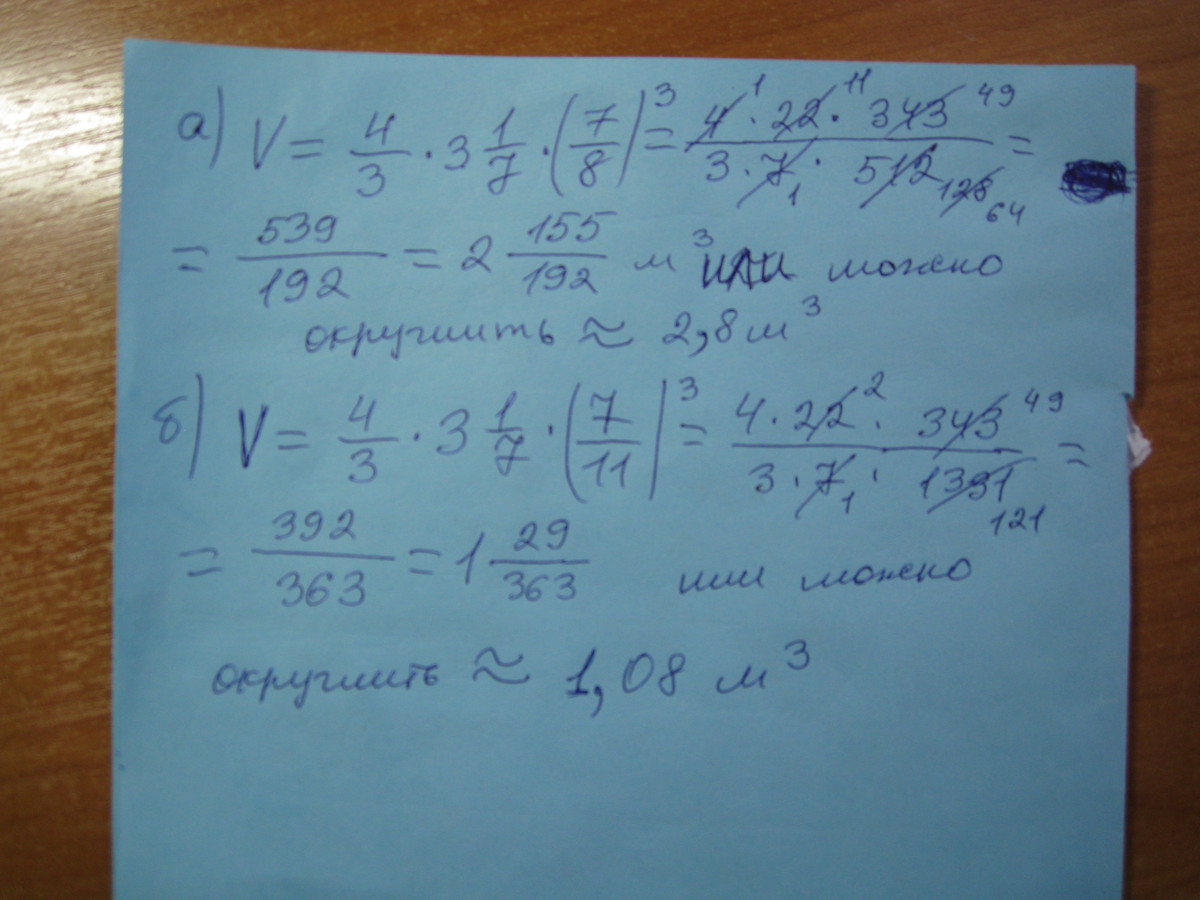 а) V = 4/3 · 3 1/7 · (7/8)³ = 4 1 · 22 11 · 343 49 / 3 · 7 1 · 512 128 64 =
= 539/192 = 2 155/192 м³ или можно
округлить ≈ 2,8 м³
б) V = 4/3 · 3 1/7 · (7/11)³ = 4 · 22 2 · 343 49 / 3 · 7 1 · 1331 121 =
= 392/363 = 1 29/363 или можно
округлить ≈ 1,08 м³